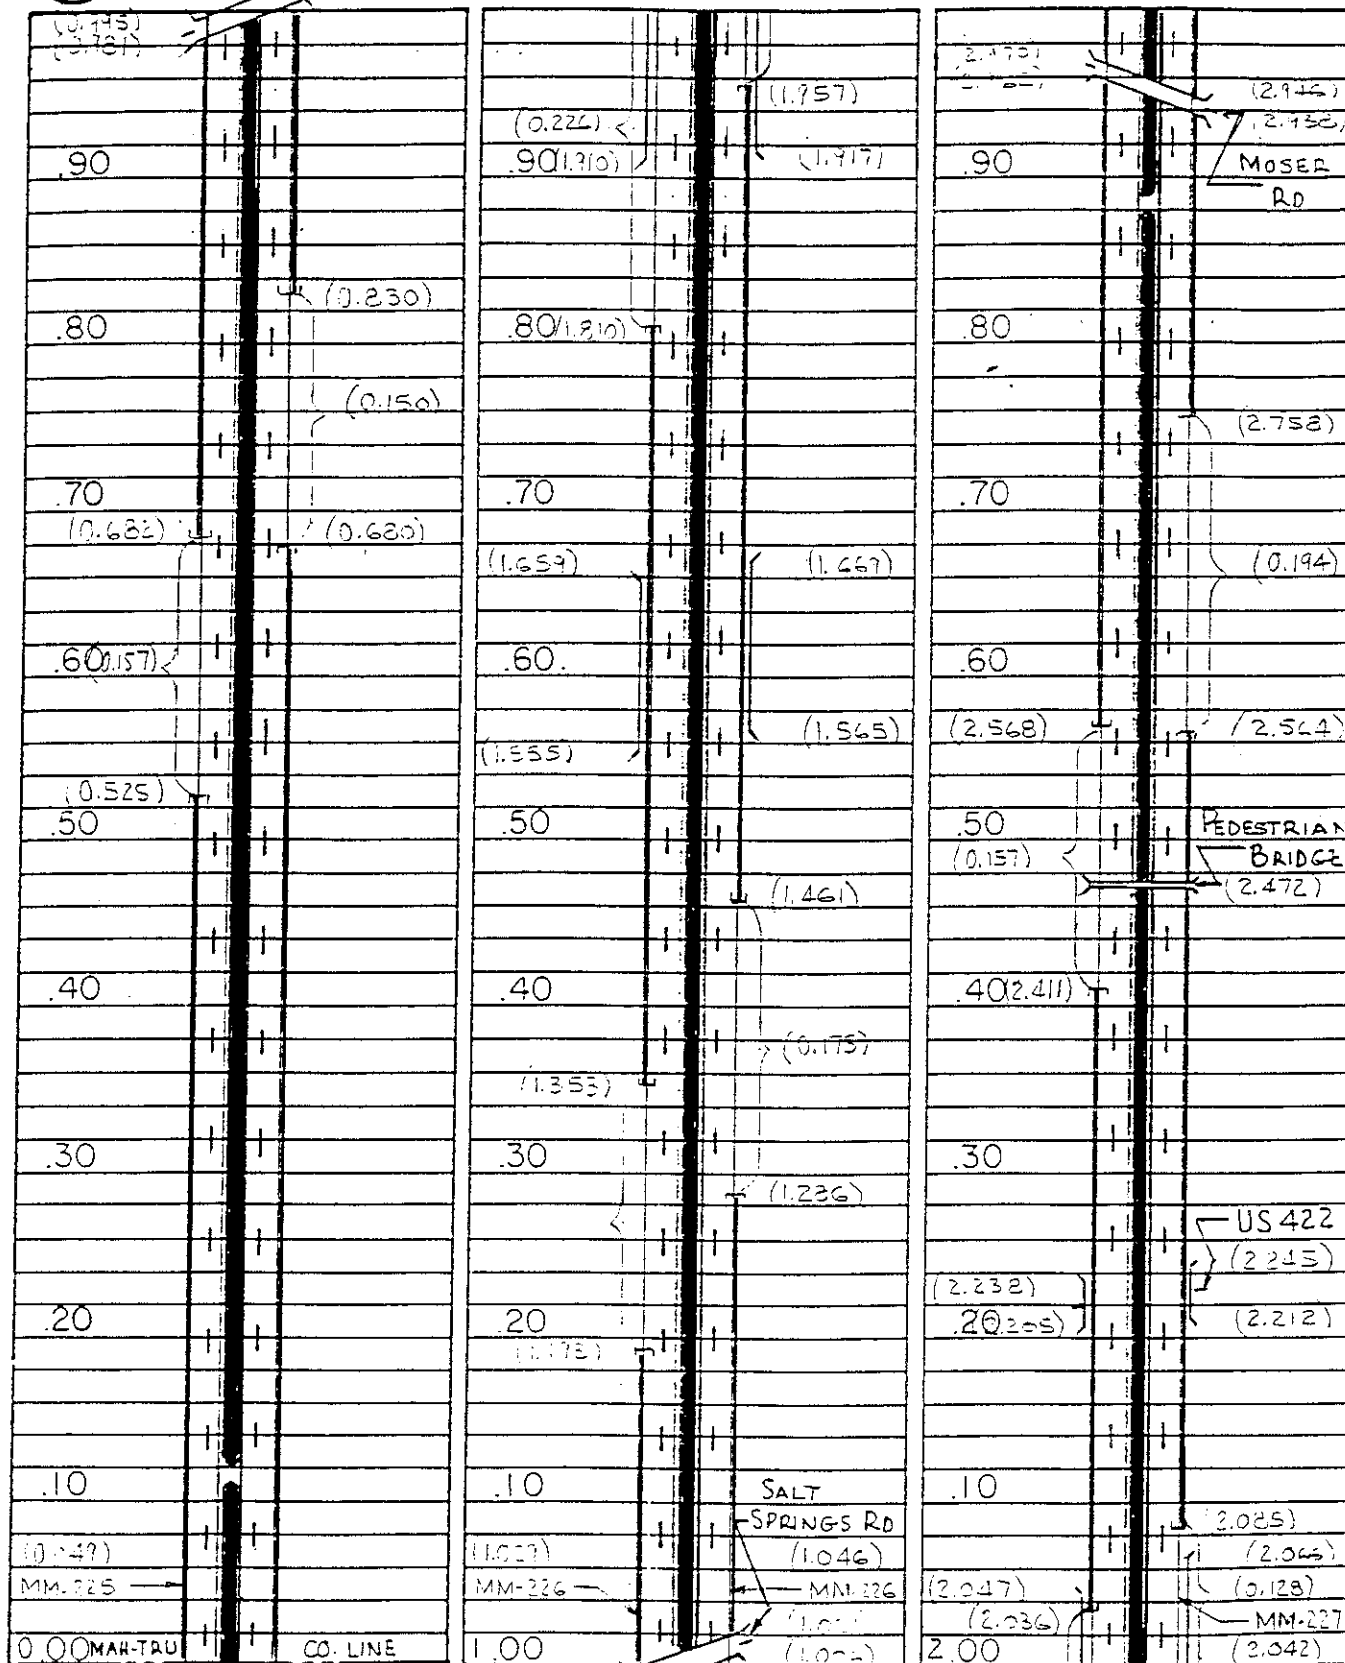 .90
(0.830)
.80
(0.150)
.70
(0.682)
(0.680)
.60
(0.157)
(0.525)
.50
.40
.30
.20
.10
MM-225
0.00 MAH-TRU
CO. LINE
(1.957)
(0.226)
.90 (1.910)
(1.917)
.80 (1.810)
.70
(1.659)
(1.667)
.60
(1.565)
(1.555)
.50
(1.461)
.40
(0.175)
(1.353)
.30
(1.286)
.20
.10
SALT
SPRINGS RD
(1.046)
MM-226
MM-226
1.00
(2.946)
(2.938)
.90
MOSER
RD
.80
(2.758)
.70
(0.194)
.60
(2.568)
(2.564)
.50
PEDESTRIAN
BRIDGE
(0.157)
(2.472)
.40 (2.411)
.30
US 422
(2.245)
(2.238)
.20
(2.205)
(2.212)
.10
(2.085)
(2.065)
(2.047)
(0.128)
(2.036)
MM-227
2.00
(2.042)